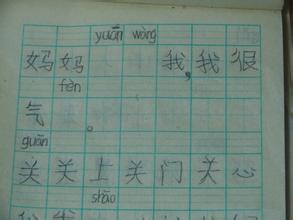 yuān wàng
妈妈 我,我很
fèn
气 。
guān
关 关上 关门 关心
shāo